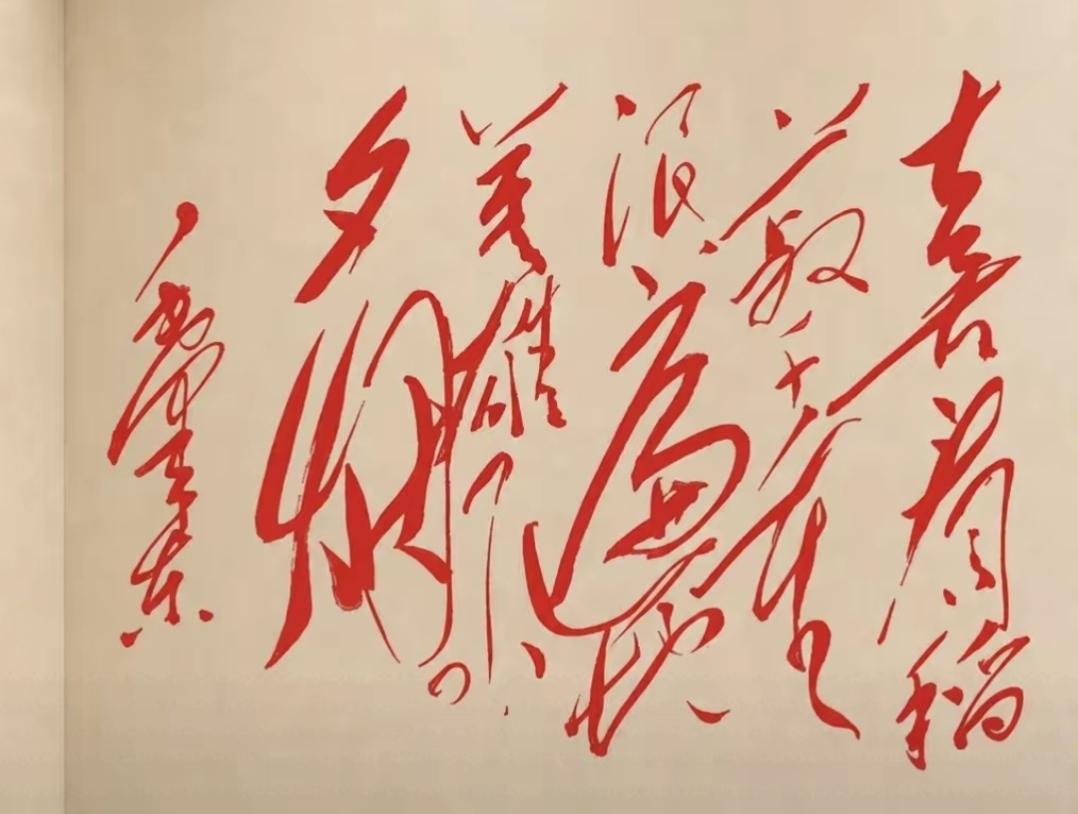 喜看稻
菽千重
浪，遍地
英雄下
夕烟。
毛澤東